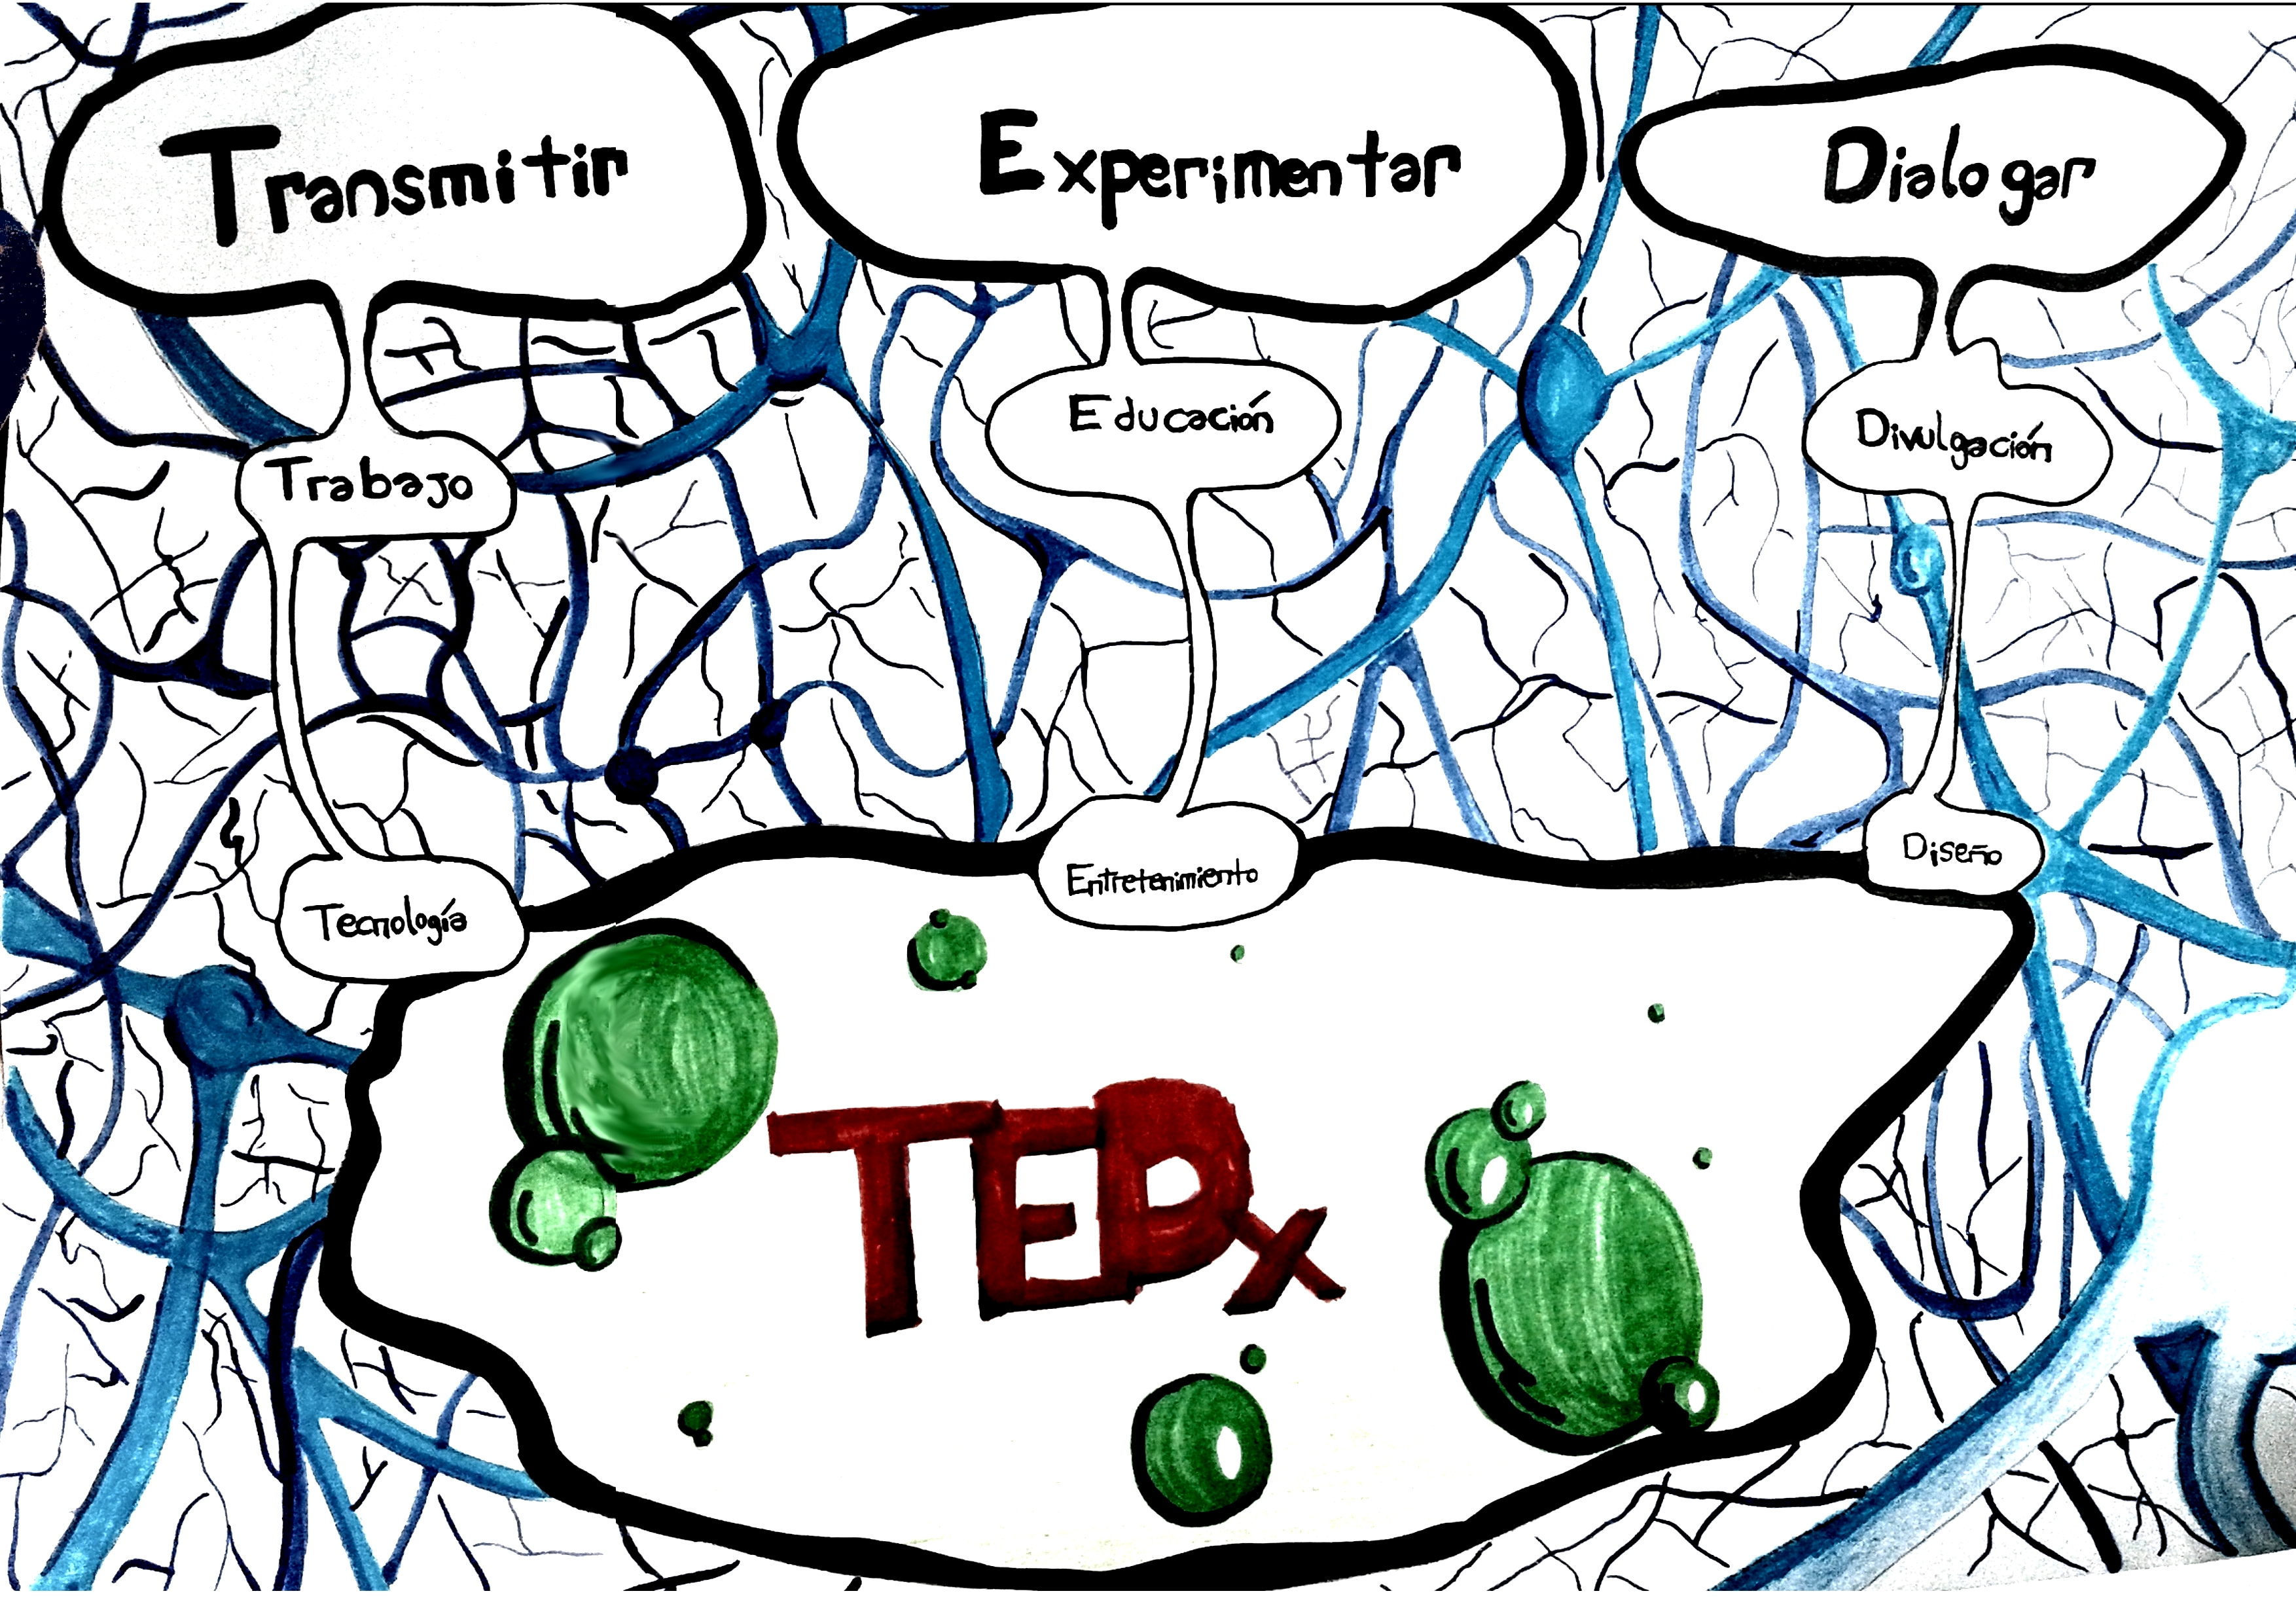 Transmitir
Experimentar
Dialogar
Trabajo
Educación
Divulgación
Tecnología
Entretenimiento
Diseño
TEDx